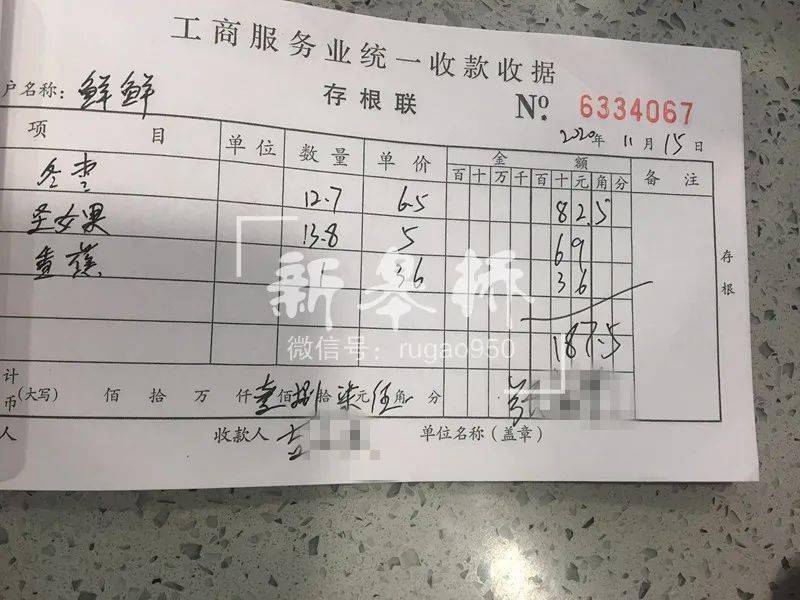 工商服务业统一收款收据
存根联 № 6334067
户名称：鲜鲜 2020年 11月 15日
项目 单位 数量 单价 金额 备注
百 十 万 千 百 十 元 角 分
冬枣 12.7 6.5 82.5
圣女果 13.8 5 69
香蕉 1 36 36
存根
新皋桥
187.5
微信号：rugao950
计
币(大写) 佰 拾 万 仟 壹佰 捌拾 柒元 伍角 分
人 收款人 单位名称（盖章）